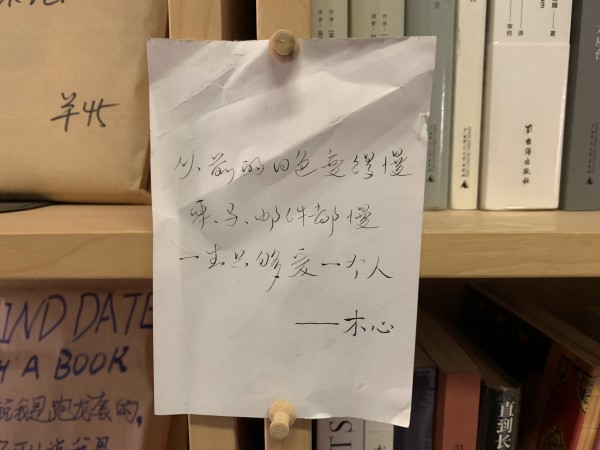 ¥45
从前的日色变得慢
车、马、邮件都慢
一生只够爱一个人
——木心
IND DATE
A BOOK
说我是跑龙套的,
著
译
审校
台海出版社
直到长